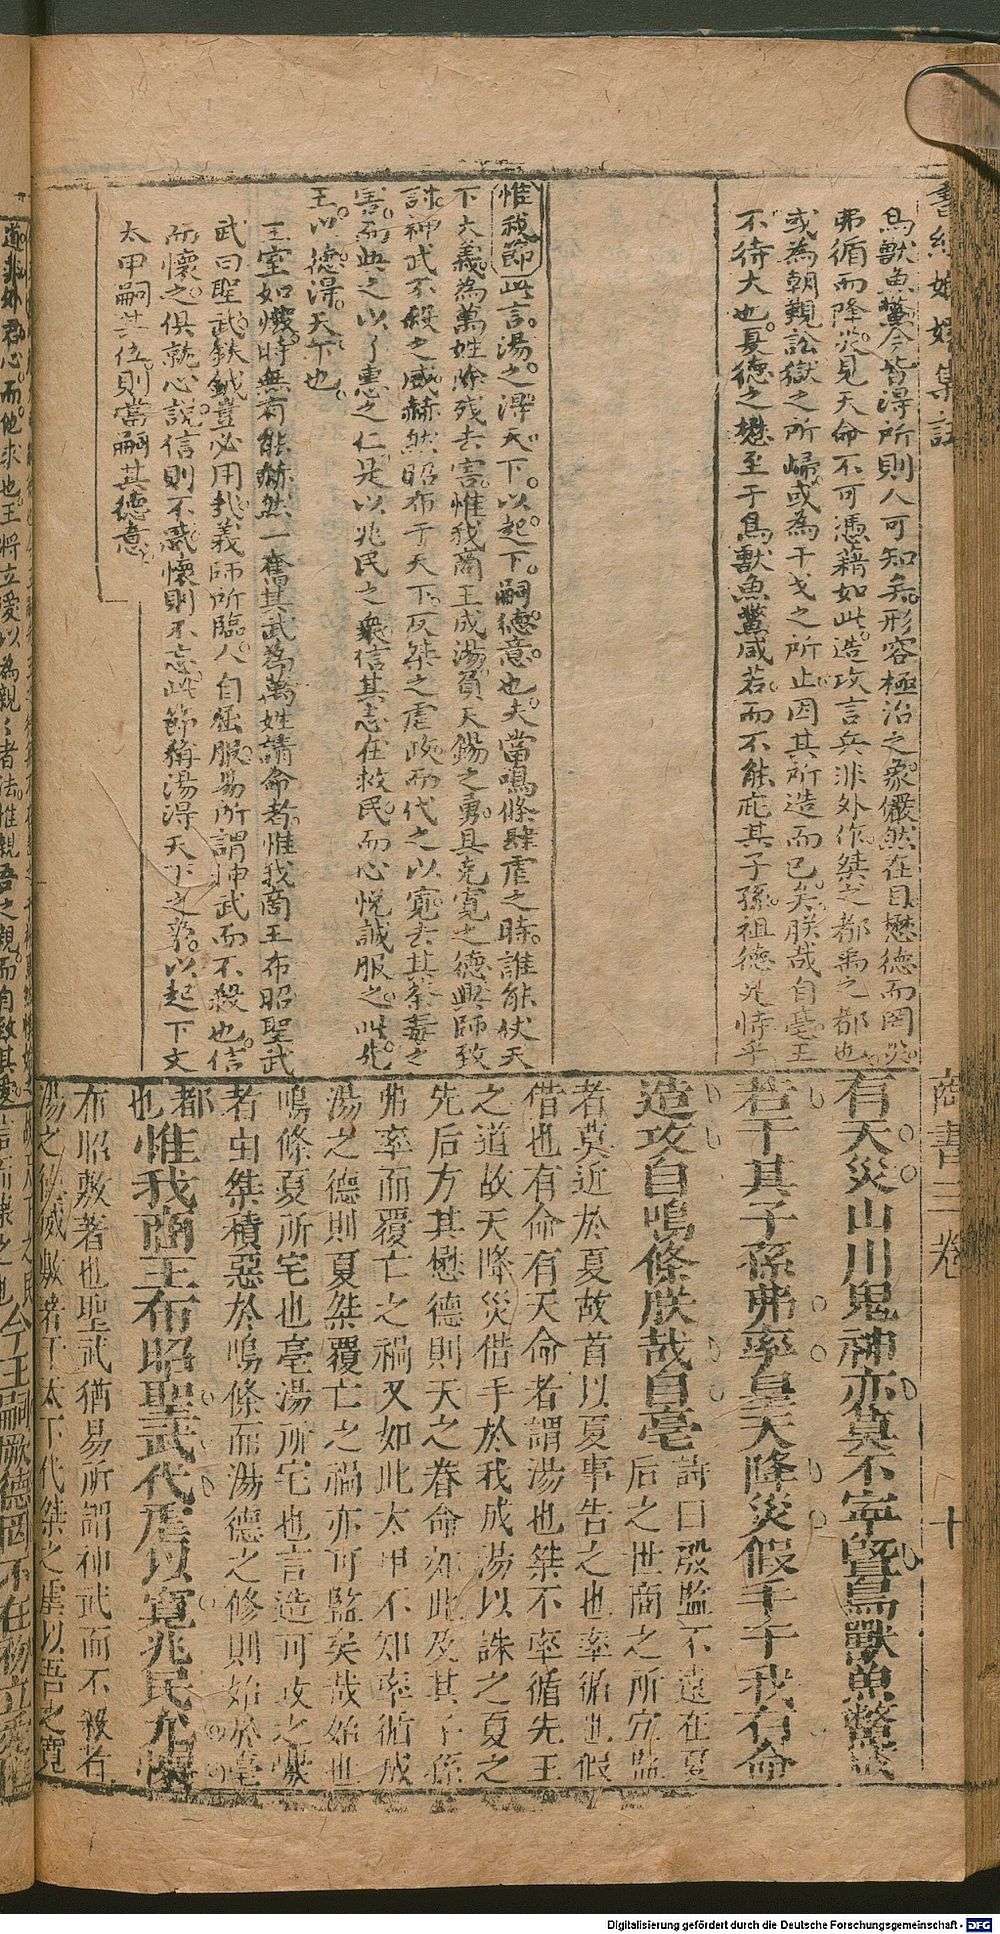 商書三卷
十
鳥獸魚鱉今皆得所則人可知矣形容極治之象儼然在目懋德而罔災
弗循而降災見天命不可憑藉如此造攻言兵非外作桀之都禹之都也
或為朝覲訟獄之所歸或為干戈之所止因其所造而已矣朕哉自亳王
不待大也夏德之懋至于鳥獸魚鱉咸若而不能庇其子孫祖德
惟我節此言湯之得天下以起下嗣德意也夫當鳴條肆虐之時誰能伏天
下大義為萬姓除残去害惟我商王成湯負天錫之勇具克寬之德興師致
討神武不殺之威赫然昭布于天下反桀之虐政而代之以寬去其荼毒之
害而與之以子惠之仁是以兆民之衆信其志在救民而心悅誠服之此先
王以德得天下也
王室如燬時無有能赫然一奮其武為萬姓請命者惟我商王布昭聖武
武曰聖武鈇鉞豈必用哉義師所臨人自傾服易所謂神武而不殺也信
而懷之俱就心說信則不疑懷則不忘此節稱湯得天下之事以起下文
太甲嗣其位則當嗣其德意
有天災山川鬼神亦莫不寧暨鳥獸魚鱉咸
若于其子孫弗率皇天降災假手于我有命
造攻自鳴條朕哉自亳詩曰殷監不遠在夏后之世商之所宜監
者莫近於夏故首以夏事告之也率循也假
借也有命有天命者謂湯也桀不率循先王
之道故天降災借手於我成湯以誅之夏之
先后方其懋德則天之眷命如此及其子孫
弗率而覆亡之禍又如此太甲不知率循成
湯之德則夏桀覆亡之禍亦可監矣哉始也
鳴條夏所宅也亳湯所宅也言造可攻之釁
者由桀積惡於鳴條而湯德之修則始於亳
都也惟我商王布昭聖武代虐以寬兆民允懷
布昭敷著也聖武猶易所謂神武而不殺者
湯之德威敷著于天下代桀之虐以吾之寬
今王嗣厥德罔不在初立愛惟
道非外君心而他求也王將立愛以為親之者法惟親吾之親而自致其愛
Digitalisierung gefördert durch die Deutsche Forschungsgemeinschaft - DFG